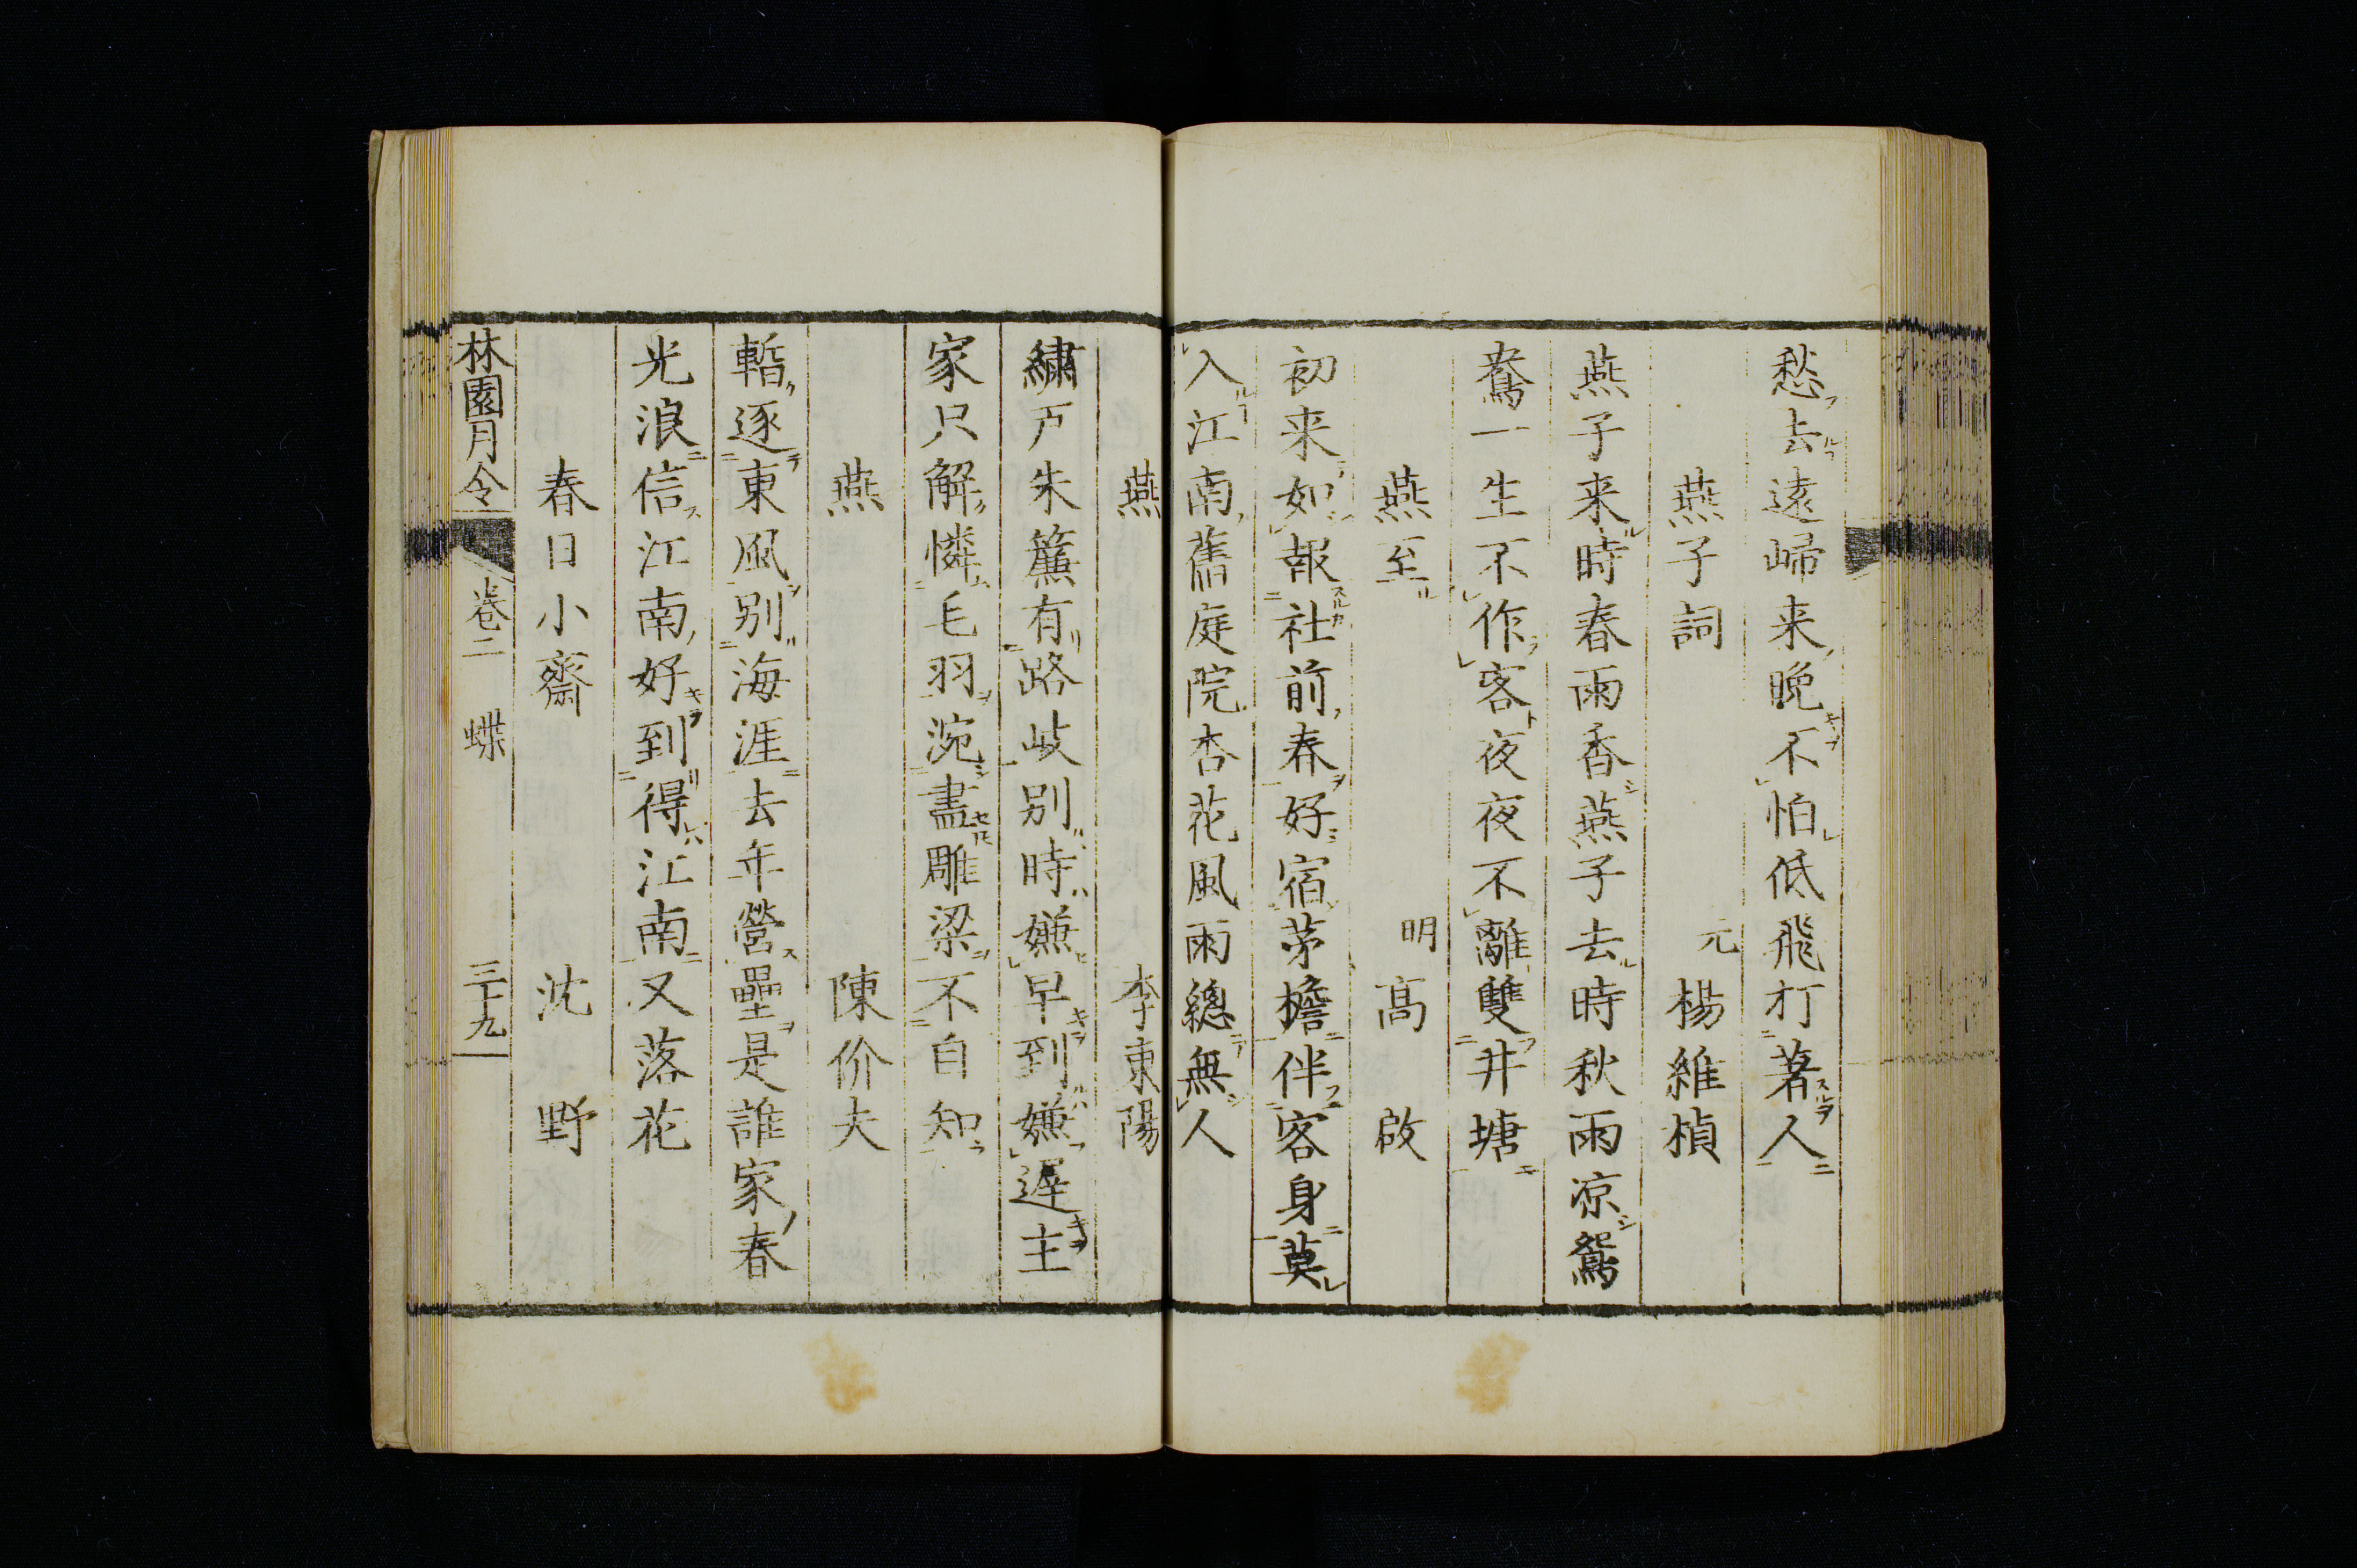 愁去遠歸来晚不怕低飛打著人
燕子詞 元 楊維楨
燕子来時春雨香燕子去時秋雨凉鴛
鴦一生不作客夜夜不離雙井塘
燕至 明 高啟
初来如報社前春好宿茅檐伴客身莫
入江南舊庭院杏花風雨總無人
燕 李東陽
繡戸朱簾有路岐別時嫌早到嫌遲主
家只解憐毛羽涴盡雕梁不自知
燕 陳价夫
暫逐東風別海涯去年營壘是誰家春
光浪信江南好到得江南又落花
春日小齋 沈野
林園月令 卷二 蝶 三十九